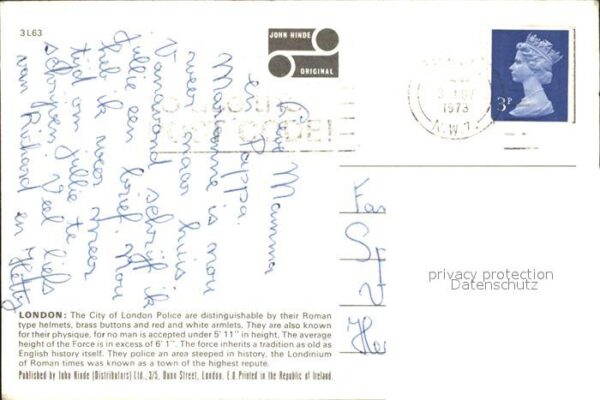 3L63
JOHN HINDE
ORIGINAL
1973
N.W.1.
3P
POST CODE!
Lieve Mamma
en Pappa.
Marianne is nou
weer naar huis
Vanavond schrijf ik
jullie een brief. Nou
heb ik weer meer
tijd om jullie te
schrijven Veel liefs
van Richard en Hetty
Fa
He
privacy protection
Datenschutz
LONDON: The City of London Police are distinguishable by their Roman
type helmets, brass buttons and red and white armlets. They are also known
for their physique, for no man is accepted under 5' 11" in height. The average
height of the Force is in excess of 6' 1". The force inherits a tradition as old as
English history itself. They police an area steeped in history, the Londinium
of Roman times was known as a town of the highest repute.
Published by John Hinde (Distributors) Ltd., 3/5, Dunn Street, London. E.8. Printed in the Republic of Ireland.